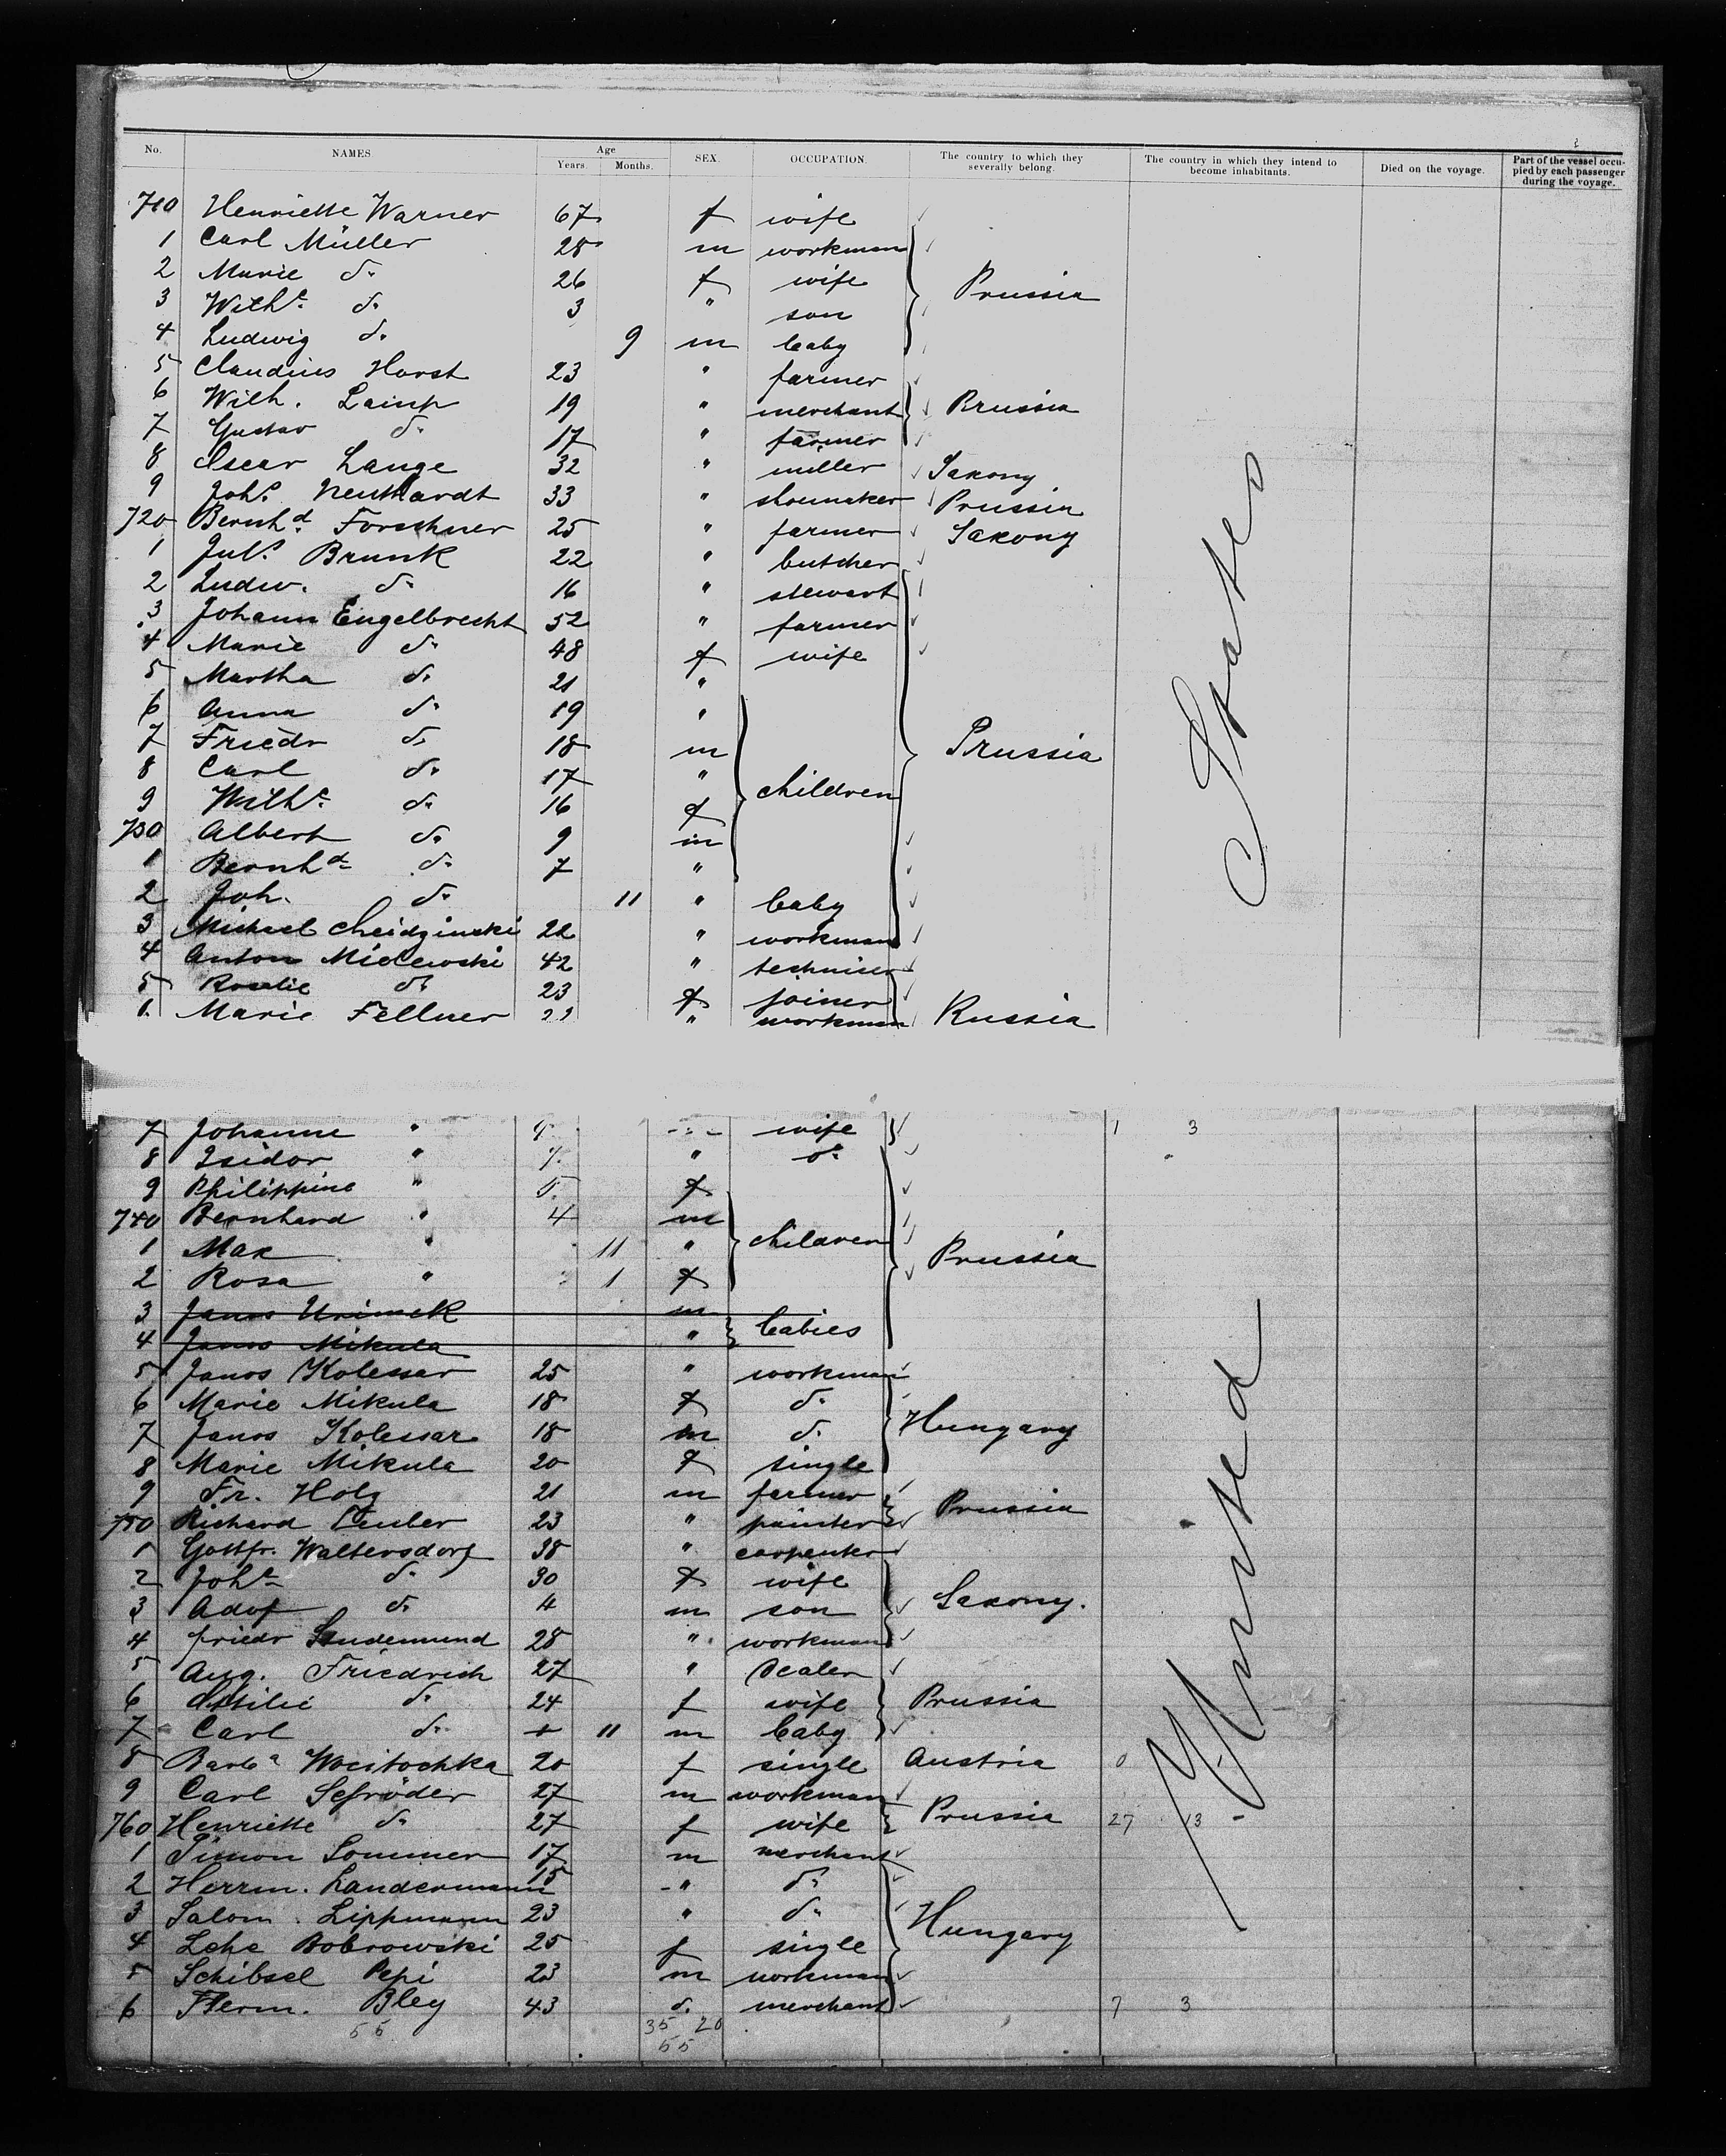 No. NAMES Age Years. Months. SEX. OCCUPATION. The country to which they severally belong. The country in which they intend to become inhabitants. Died on the voyage. Part of the vessel occupied by each passenger during the voyage.
710 Henriette Warner 67 f wife
1 Carl Müller 28 m workman
2 Marie do 26 f wife Prussia
3 Wilhe. do 3 " son
4 Ludwig do 9 m baby
5 Claudius Horst 23 " farmer
6 Wilh. Lainp 19 " merchant Prussia
7 Gustav do 17 " farmer
8 Oscar Lange 32 " miller Saxony
9 Johs. Neuthardt 33 " shoemaker Prussia
720 Bernhd. Forschner 25 " farmer Saxony
1 Juls. Brunk 22 " butcher
2 Ludw. do 16 " stewart
3 Johann Engelbrecht 52 " farmer
4 Marie do 48 f wife
5 Martha do 21 "
6 Anna do 19 "
7 Friedr do 18 m Prussia
8 Carl do 17 " children
9 Wilhe. do 16 f
730 Albert do 9 m
1 Bernhd. do 7 "
2 Joh. do 11 " baby
3 Michael Cheidzinski 22 " workman
4 Anton Milewski 42 " techniser
5 Rosalie do 23 f joiner
6 Marie Fellner " workman Russia
7 Johanne " wife 1 3
8 Isidor " 7 " do
9 Philippine " 5 f
740 Bernhard " 4 m
1 Max " 11 " children Prussia
2 Rosa " 1 f
3 Janos Urimek m
4 Janos Mikula " babies
5 Janos Kolessar 25 " workman
6 Marie Mikula 18 f do
7 Janos Kolessar 18 m do Hungary
8 Marie Mikula 20 f single
9 Fr. Holz 21 m farmer Prussia
750 Richard Teuber 23 " painter
1 Gottfr. Waltersdorf 38 " carpenter
2 Johe do 30 f wife
3 Adof do 4 m son Saxony.
4 Friedr 28 " workman
5 Aug. Friedrich 27 " dealer
6 Ottilie do 24 f wife Prussia
7 Carl do 11 m baby
8 Barba Wocitochka 20 f single Austria 0
9 Carl Schröder 27 m workman
760 Henriette do 27 f wife Prussia 27 13 -
1 Simon Sommer 17 m merchant
2 Herrm. Landermann 15 " do
3 Salom. Lippmann 23 " do Hungary
4 Lehe Bobrowski 25 f single
5 Schibsel Pepi 23 m workman
6 Herm. Bley 43 do merchant 7 3
55 35 20
55
United States